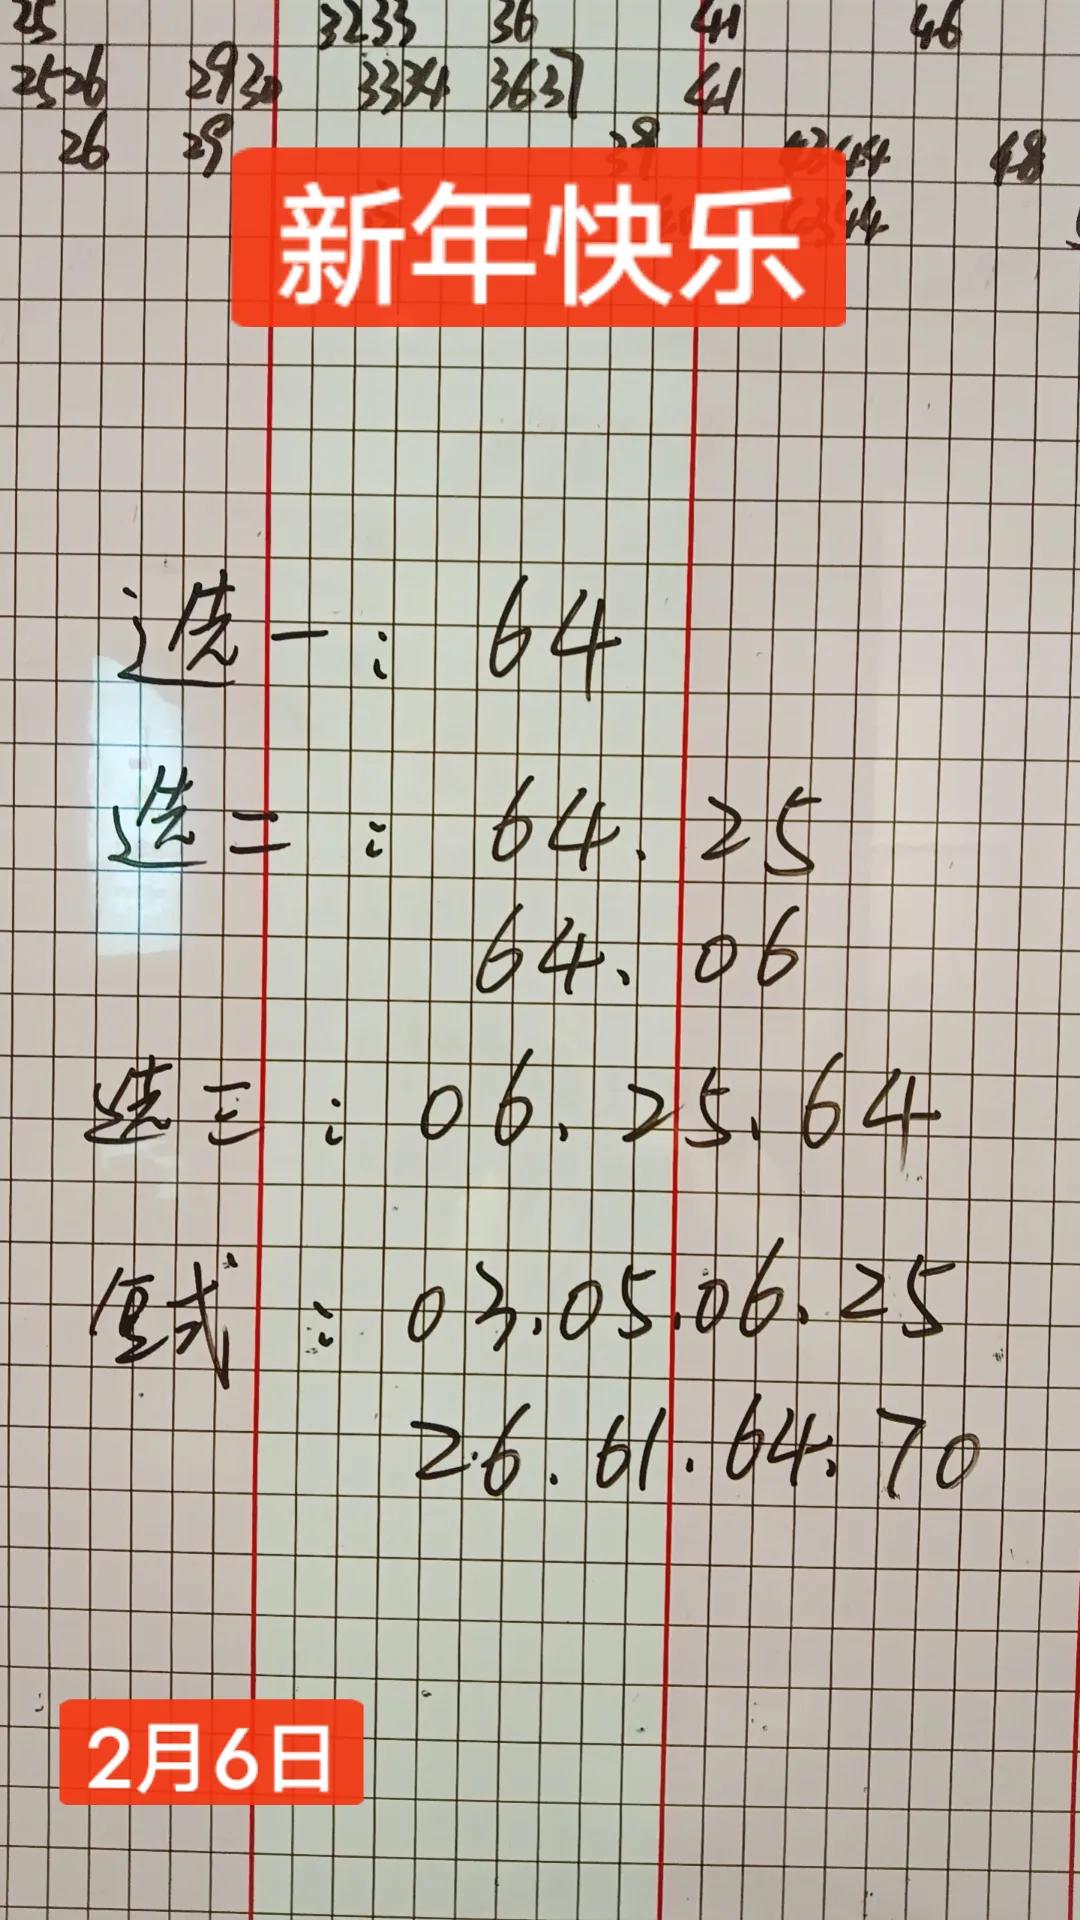 25 3233 36 41 46
2526 2930 3334 3637 41
26 29 39 4344 48
4344
新年快乐
选一: 64
选二: 64. 25
64. 06
选三: 06. 25. 64
复式: 03. 05. 06. 25
26. 61. 64. 70
2月6日